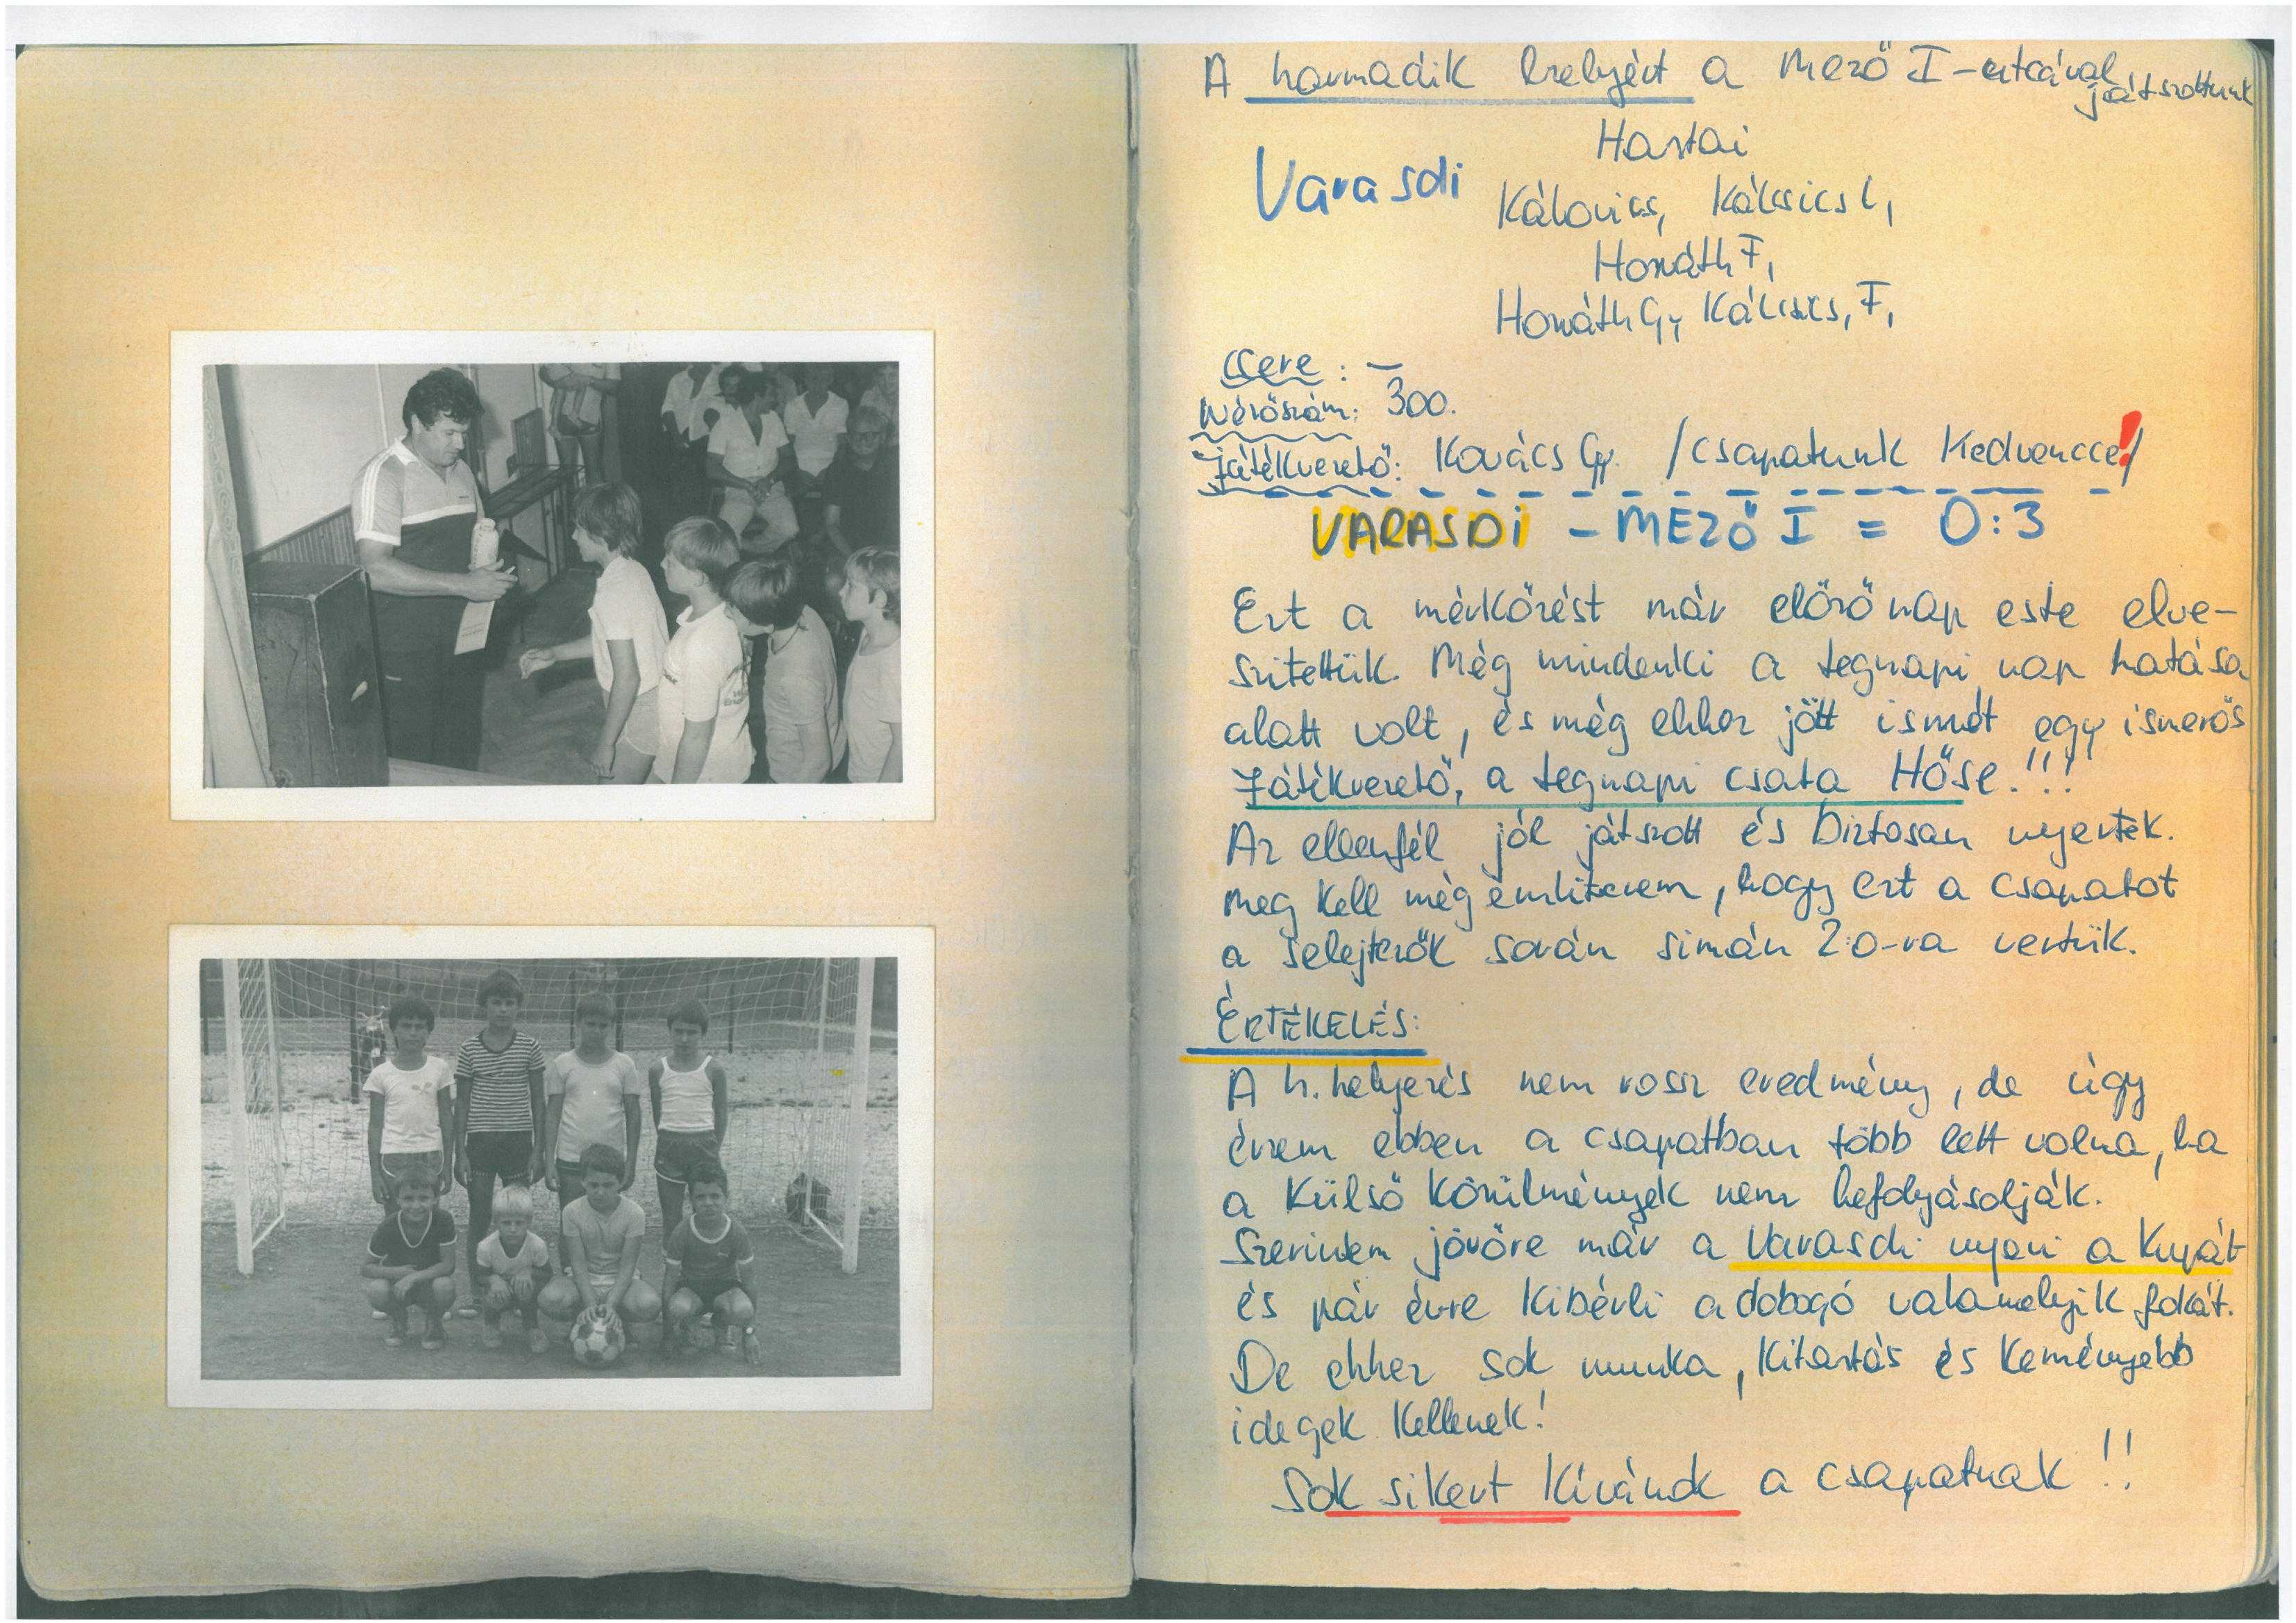 A harmadik helyért a Mező I-utcával játszottunk
Hartai
Varasdi
Kálovics, Kálcsics L,
Horváth F,
Horváth Gy, Kálcsics, F,
Csere: —
Nézőszám: 300.
Játékvezető: Kovács Gy. /Csapatunk Kedvencce!/
VARASDI - MEZŐ I = 0:3
Ezt a mérkőzést már előző nap este elve-
szitettük. Még mindenki a tegnapi nap hatása
alatt volt, és még ehhez jött ismét egy ismerős
Játékvezető, a tegnapi csata Hőse!!!
Az ellenfél jól játszott és biztosan nyertek.
Meg kell még emlitenem, hogy ezt a csapatot
a selejtezők során simán 2:0-ra vertük.
ÉRTÉKELÉS:
A h. helyezés nem rossz eredmény, de úgy
érzem ebben a csapatban több lett volna, ha
a Külső Körülmények nem befolyásolják.
Szerintem jövőre már a Varasdi nyeri a Kupát
és pár évre Kibérli a dobogó valamelyik fokát.
De ehhez sok munka, Kitartás és Keményebb
idegek Kellenek!
Sok sikert Kívánok a csapatnak!!